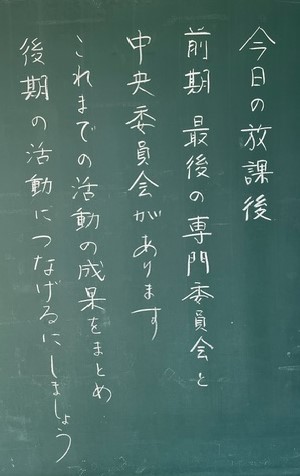 今日の放課後
前期 最後の専門委員会と
中央委員会があります
これまでの活動の成果をまとめ
後期の活動につなげるにしましょう